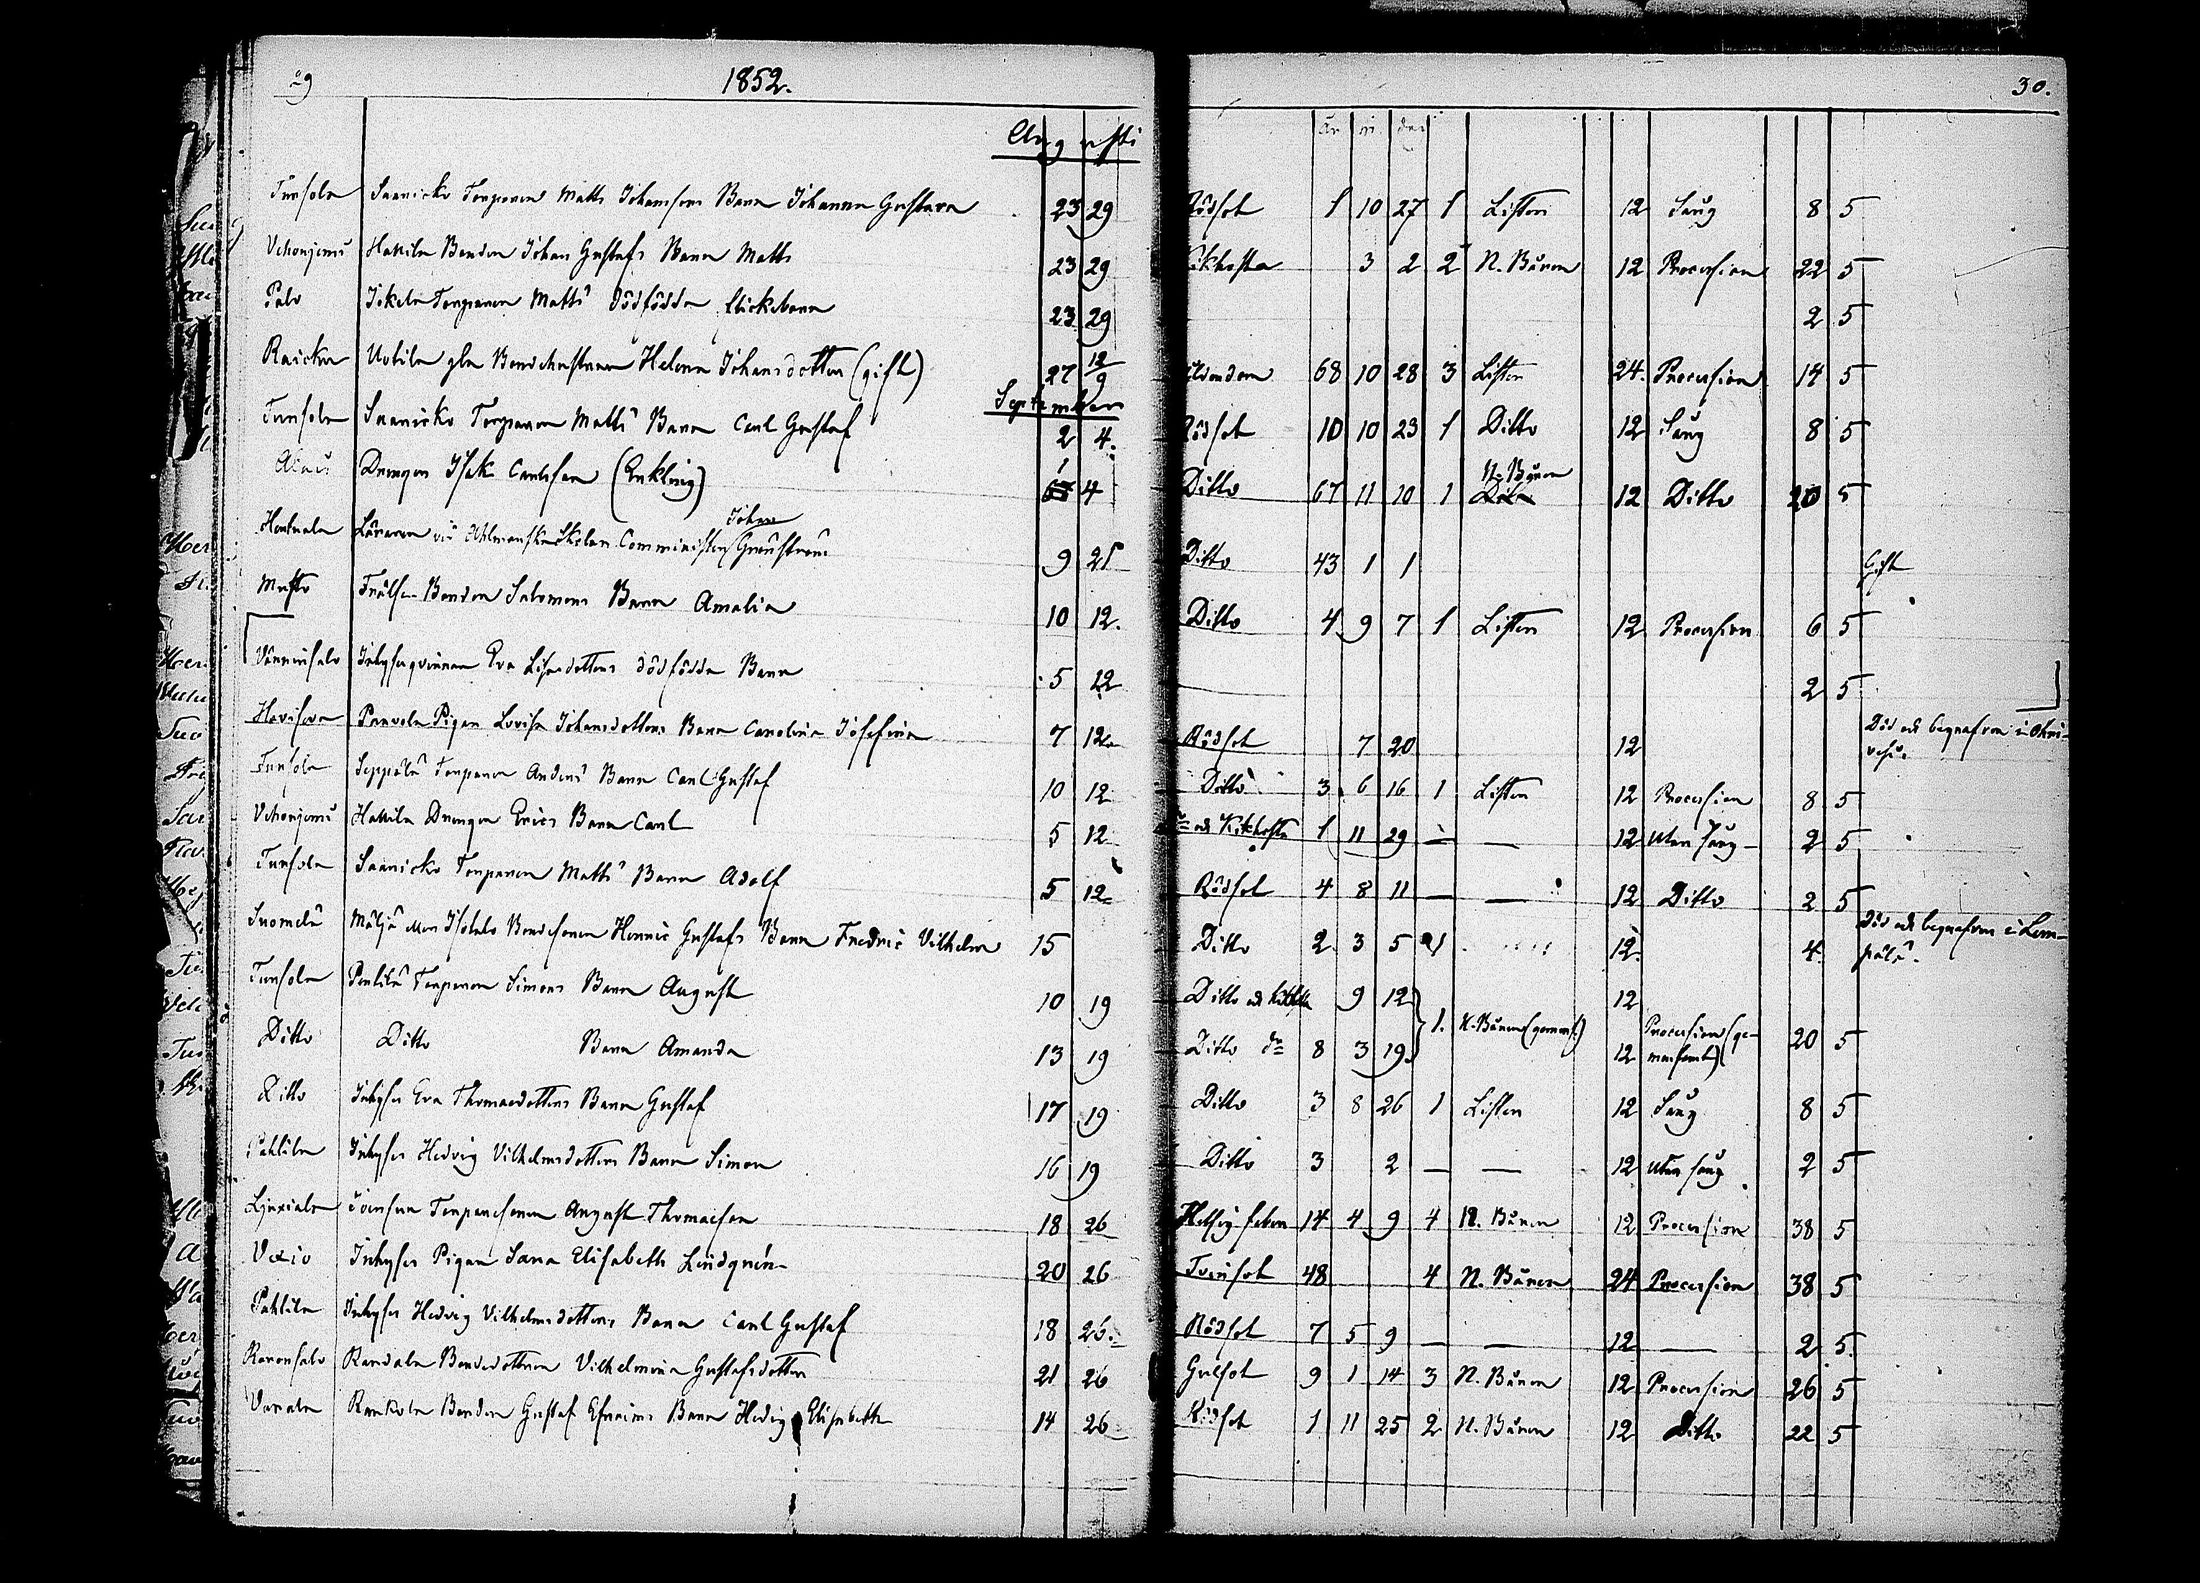 29 1852. 30.
Augusti
år m dar
Tursola Saanicko Torparen Matts Johanssons Barn Johanna Gustava 23 29 Rödsot 1 10 27 1 Listen 12 Sång 8 5
Uhonjemi Hattila Bonden Johan Gustafs Barn Matts 23 29 Kikhosta 3 2 2 N. Båren 12 Procession 22 5
Palo Jokela Torparen Matts' dödfödda flickebarn 23 29 2 5
Raicka Uotila gla Bondehustrun Helena Johansdotter (gift) 27 12/9 Ålderdom 68 10 28 3 Listen 24 Procession 14 5
September
Tursola Saanicko Torparen Matts' Barn Carl Gustaf 2 4. Rödsot 10 10 23 1 Ditto 12 Sång 8 5
Drengen Isak Carlsson (Enkling) 1 4 Ditto 67 11 10 1 N. Båren 12 Ditto 20 5
Läraren vid Ahlmanska Skolan Comminister Johan 9 21 Ditto 43 1 1 Gift
Bonden Salomons Barn Amalia 10 12. Ditto 4 9 7 1 Listen 12 Procession 6 5
Inhyses qvinnan Eva Lisas dotters dödfödda Barn 5 12 2 5
Pigan Lovisa Johansdotters Barn Carolina Josefina 7 12 Rödsot 7 20 12 Död och begrafven i
Tursola Seppälä Torparen Anders' Barn Carl Gustaf 10 12 Ditto 3 6 16 1 Listen 12 Procession 8 5
Uhonjemi Hattila Drengen Erics Barn Carl 5 12 och Kikhosta 1 11 29 — — 12 Utan Sång 2 5
Tursola Saanicko Torparen Matts' Barn Adolf 5 12 Rödsot 4 8 11 — — 12 Ditto 2 5
Suomela Bondesonen Henric Gustafs Barn Fredric Vilhelm 15 Ditto 2 3 5 1 12 4 Död och begrafven i Lem-
pälä.
Tursola Pentilä Torparen Simons Barn August 10 19 Ditto och Kikhosta 9 12 1. N. Båren (gemens.) 12 Procession (ge-
Ditto Ditto Barn Amanda 13 19 Ditto do 8 3 19 12 mensamt) 20 5
Ditto Inhyses Eva Thomasdotters Barn Gustaf 17 19 Ditto 3 8 26 1 Listen 12 Sång 8 5
Pahlila Inhyses Hedvig Vilhelmsdotters Barn Simon 16 19 Ditto 3 2 — — 12 utan sång 2 5
Torparesonen August Thomasson 18 26 feber 14 4 9 4 N. Båren 12 Procession 38 5
Inhyses Pigan Sara Elisabeth Lindqvén 20 26 Tvinsot 48 4 N. Båren 24 Procession 38 5
Pahlila Inhyses Hedvig Vilhelmsdotters Barn Carl Gustaf 18 26 Rödsot 7 5 9 — — 12 — 2 5.
Bondedottren Vilhelmina Gustafsdotter 21 26 Gulsot 9 1 14 3 N. Båren 12 Procession 26 5
Bonden Gustaf Efraims Barn Hedvig Elisabeth 14 26 Rödsot 1 11 25 2 N. Båren 12 Ditto 22 5